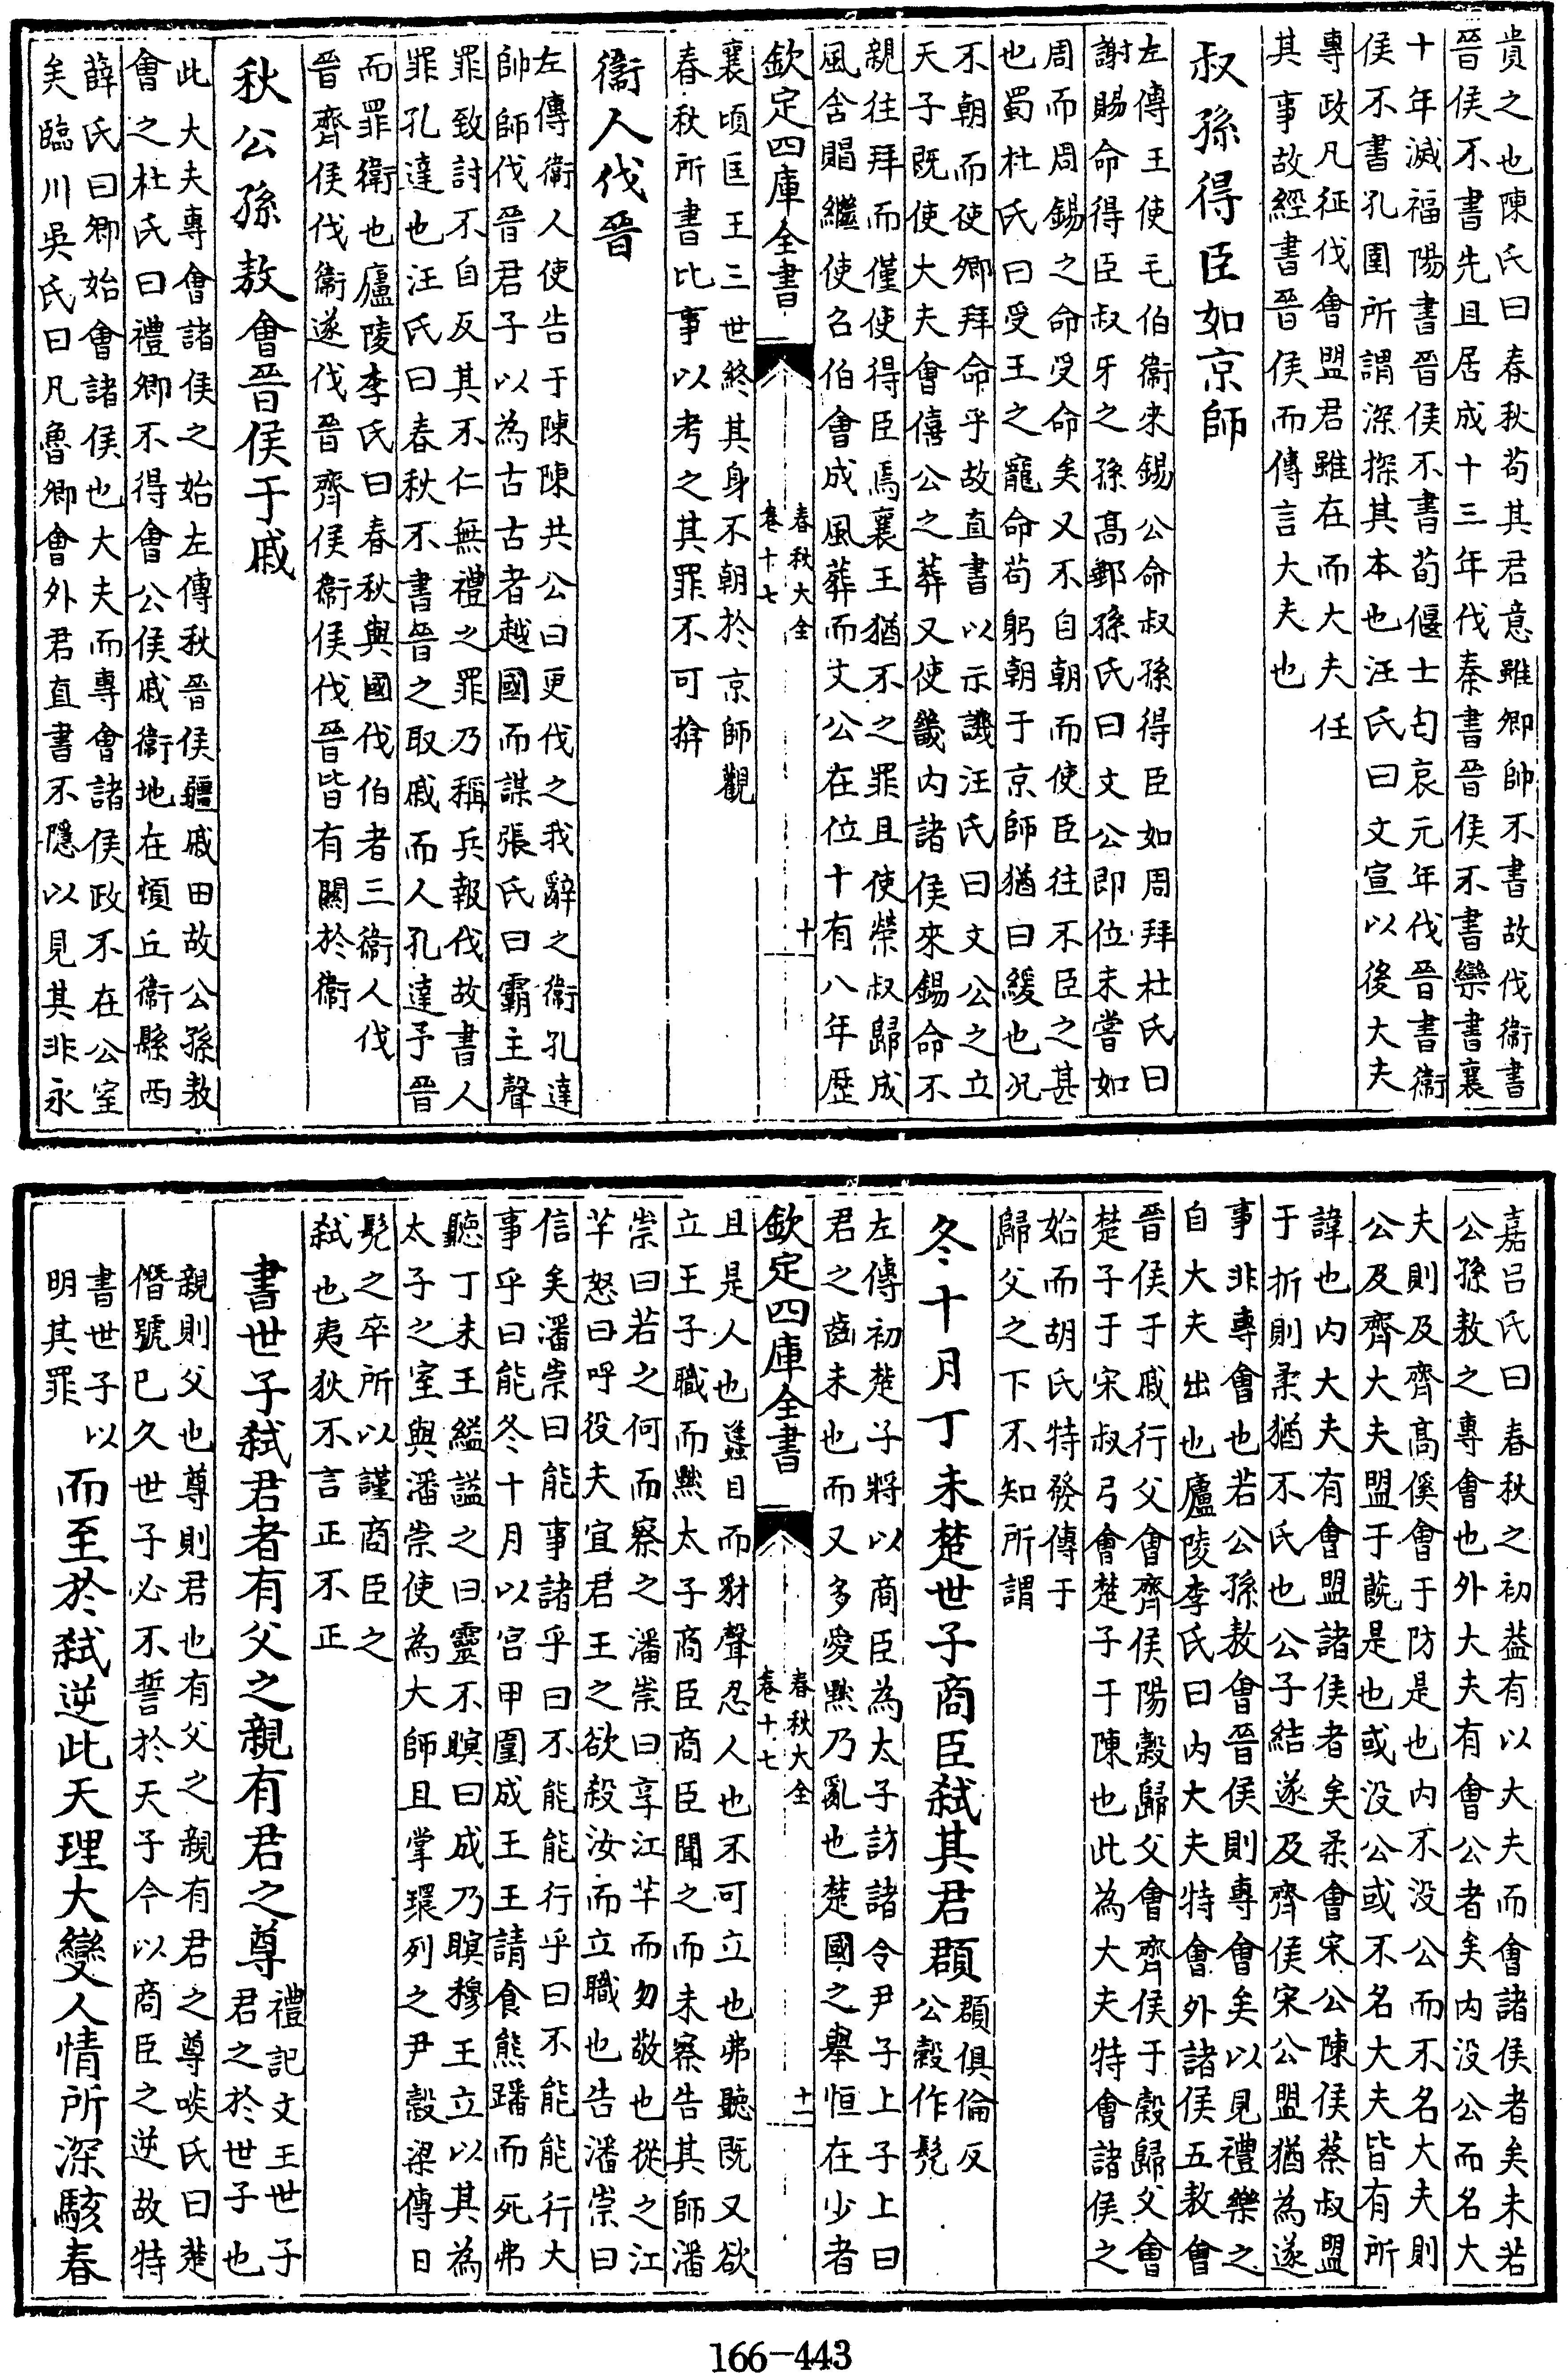 貴之也陳氏曰春秋苟其君意雖卿帥不書故伐衛書
晉侯不書先且居成十三年伐秦書晉侯不書欒書襄
十年滅福陽書晉侯不書荀偃士匄哀元年伐晉書衛
侯不書孔圉所謂深探其本也汪氏曰文宣以後大夫
專政凡征伐會盟君雖在而大夫任
其事故經書晉侯而傳言大夫也
叔孫得臣如京師
左傳王使毛伯衛來錫公命叔孫得臣如周拜杜氏曰
謝賜命得臣叔牙之孫髙郵孫氏曰文公即位未嘗如
周而周錫之命受命矣又不自朝而使臣往不臣之甚
也蜀杜氏曰受王之寵命苟躬朝于京師猶曰緩也况
不朝而使卿拜命乎故直書以示譏汪氏曰文公之立
天子既使大夫會僖公之葬又使畿内諸侯來錫命不
親往拜而僅使得臣焉襄王猶不之罪且使榮叔歸成
風含賵繼使召伯會成風葬而文公在位十有八年歴
欽定四庫全書
春秋大全
卷十七
十
襄頃匡王三世終其身不朝於京師觀
春秋所書比事以考之其罪不可揜
衞人伐晉
左傳衛人使告于陳陳共公曰更伐之我辭之衛孔達
帥師伐晉君子以為古古者越國而謀張氏曰霸主聲
罪致討不自反其不仁無禮之罪乃稱兵報伐故書人
罪孔達也汪氏曰春秋不書晉之取戚而人孔達予晉
而罪衛也廬陵李氏曰春秋與國伐伯者三衛人伐
晉齊侯伐衛遂伐晉齊侯衛侯伐晉皆有闗於衛
秋公孫敖會晉侯于戚
此大夫專會諸侯之始左傳秋晉侯疆戚田故公孫敖
會之杜氏曰禮卿不得會公侯戚衛地在頓丘衛縣西
薛氏曰卿始會諸侯也大夫而專會諸侯政不在公室
矣臨川吳氏曰凡魯卿會外君直書不隱以見其非永
嘉吕氏曰春秋之初葢有以大夫而會諸侯者矣未若
公孫敖之專會也外大夫有會公者矣内没公而名大
夫則及齊髙傒會于防是也内不没公而不名大夫則
公及齊大夫盟于蔇是也或没公或不名大夫皆有所
諱也内大夫有會盟諸侯者矣柔會宋公陳侯蔡叔盟
于折則柔猶不氏也公子結遂及齊侯宋公盟猶為遂
事非專會也若公孫敖會晉侯則專會矣以見禮樂之
自大夫出也廬陵李氏曰内大夫特會外諸侯五敖會
晉侯于戚行父會齊侯陽榖歸父會齊侯于榖歸父會
楚子于宋叔弓會楚子于陳也此為大夫特會諸侯之
始而胡氏特發傳于
歸父之下不知所謂
冬十月丁未楚世子商臣弑其君頵
頵俱倫反
公榖作髠
左傳初楚子將以商臣為太子訪諸令尹子上子上曰
君之齒未也而又多愛黜乃亂也楚國之舉恒在少者
欽定四庫全書
春秋大全
卷十七
十一
且是人也蠭目而豺聲忍人也不可立也弗聽既又欲
立王子職而黜太子商臣商臣聞之而未察告其師潘
崇曰若之何而察之潘崇曰享江芊而勿敬也從之江
芊怒曰呼役夫宜君王之欲殺汝而立職也告潘崇曰
信矣潘崇曰能事諸乎曰不能能行乎曰不能能行大
事乎曰能冬十月以宫甲圍成王王請食熊蹯而死弗
聽丁未王縊諡之曰靈不瞑曰成乃瞑穆王立以其為
太子之室與潘崇使為大師且掌環列之尹榖梁傳曰
髠之卒所以謹商臣之
弑也夷狄不言正不正
書世子弑君者有父之親有君之尊
禮記文王世子
君之於世子也
親則父也尊則君也有父之親有君之尊啖氏曰楚
僭號已久世子必不誓於天子今以商臣之逆故特
書世子以
明其罪
而至於弑逆此天理大變人情所深駭春
166-443